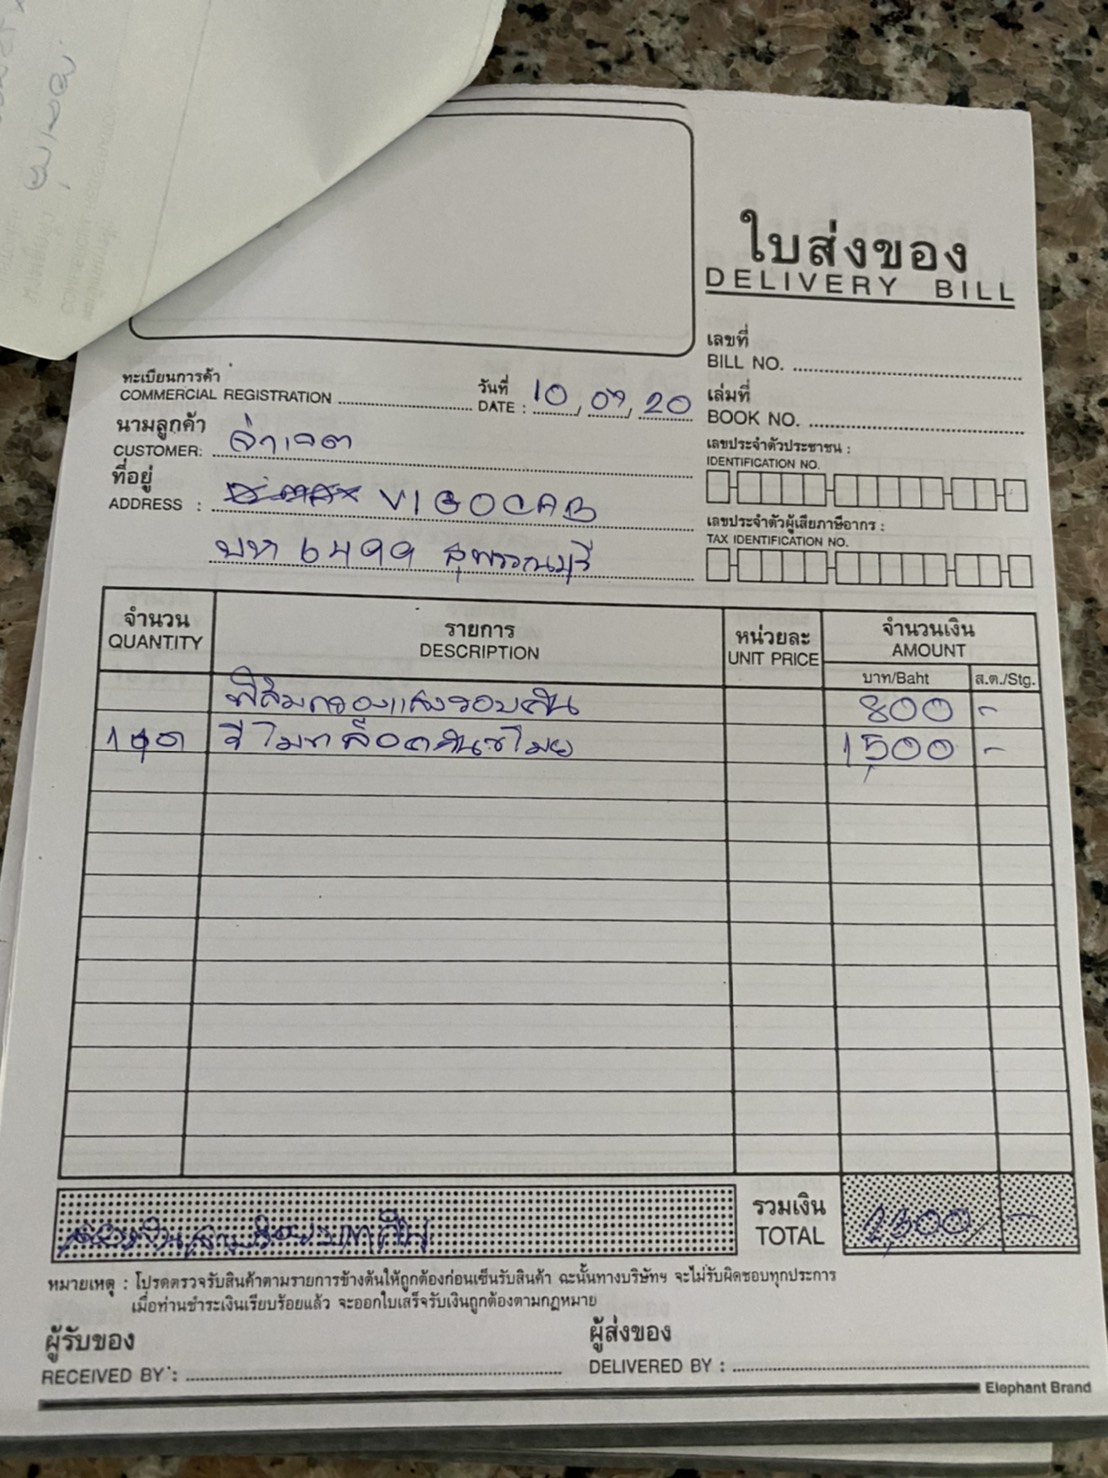 ใบส่งของ
DELIVERY BILL
เลขที่
BILL NO.
ทะเบียนการค้า
COMMERCIAL REGISTRATION
วันที่
DATE : 10, 09, 20
เล่มที่
BOOK NO.
นามลูกค้า
CUSTOMER: จ่าเจต
เลขประจำตัวประชาชน :
IDENTIFICATION NO.
ที่อยู่
ADDRESS : VIGOCAB
เลขประจำตัวผู้เสียภาษีอากร :
TAX IDENTIFICATION NO.
บท 6499 สุพรรณบุรี
จำนวน
QUANTITY
รายการ
DESCRIPTION
หน่วยละ
UNIT PRICE
จำนวนเงิน
AMOUNT
บาท/Baht
ส.ต./Stg.
ฟิล์มกรองแสงรอบคัน 800 -
1ชุด รีโมทล็อคกันขโมย 1,500 -
รวมเงิน
TOTAL
2,300 -
สองพันสามร้อยบาทถ้วน
หมายเหตุ : โปรดตรวจรับสินค้าตามรายการข้างต้นให้ถูกต้องก่อนเซ็นรับสินค้า ฉะนั้นทางบริษัทฯ จะไม่รับผิดชอบทุกประการ
เมื่อท่านชำระเงินเรียบร้อยแล้ว จะออกใบเสร็จรับเงินถูกต้องตามกฎหมาย
ผู้รับของ
RECEIVED BY :
ผู้ส่งของ
DELIVERED BY :
Elephant Brand